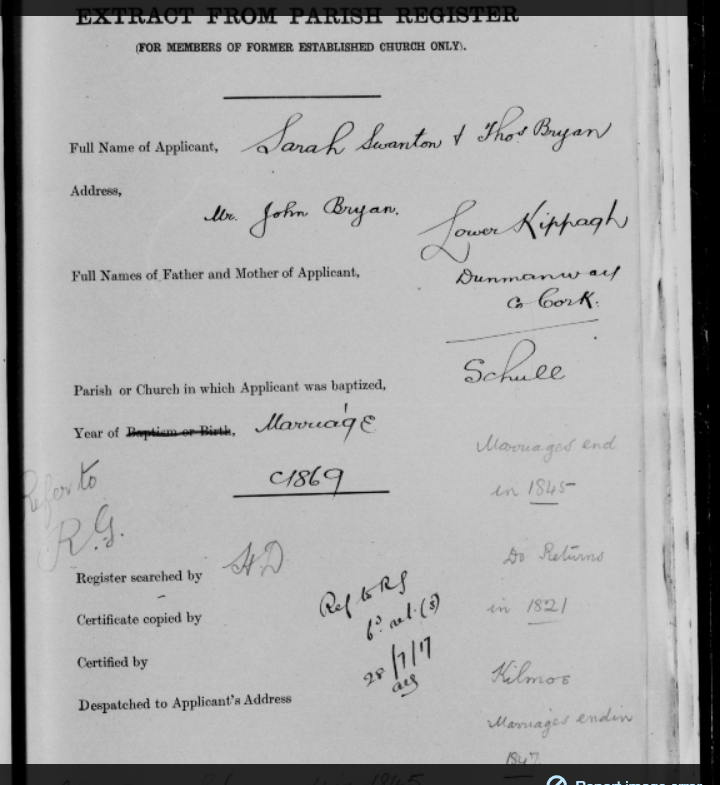 EXTRACT FROM PARISH REGISTER
(FOR MEMBERS OF FORMER ESTABLISHED CHURCH ONLY).
Full Name of Applicant, Sarah Swanton & Thos Bryan
Address,
Mr. John Bryan. Lower Kippagh
Full Names of Father and Mother of Applicant, Dunmanway
Co Cork.
Parish or Church in which Applicant was baptized, Schull
Year of Baptism or Birth, Marriage
Marriages end
C1869
in 1845
Refer to
R.G.
Do Returns
Register searched by HD
in 1821
Certificate copied by
Ref to RG
6d ret. (s)
Certified by
28/7/17
Kilmoe
Despatched to Applicant's Address
Marriages end in
1847
1845
Report image error